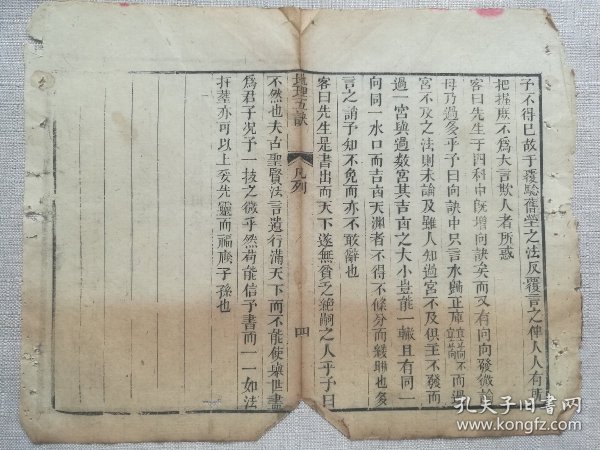 子不得已故于覆驗舊塋之法反覆言之俾人人有所
把握庶不爲大言欺人者所惑
客曰先生于四科中旣增向訣矣而又有向向發微
母乃過多乎予曰向訣中只言水歸正庫 而過
宮不及之法則未論及雖人知過宮不及俱主不發而
過一宮與過數宮其吉凶之大小豈能一轍且有同一
向同一水口而吉凶天淵者不得不條分而縷晰也多
言之誚予知不免而亦不敢辭也
客曰先生是書出而天下遂無貧乏絶嗣之人乎予曰
地理五訣 凡例 四
不然也夫古聖賢法言遺行滿天下而不能使舉世盡
爲君子况予一技之微乎然苟能信予書而一一如法
扦葬亦可以上妥先靈而福廕子孫也
孔夫子旧书网